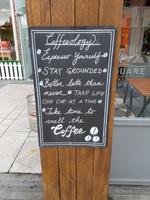 Coffeeology
Espresso Yourself
STAY GROUNDED
Better latte than
never • TAKE LIFE
ONE CUP AT A TIME
Take time to
smell the
Coffee
QUARE